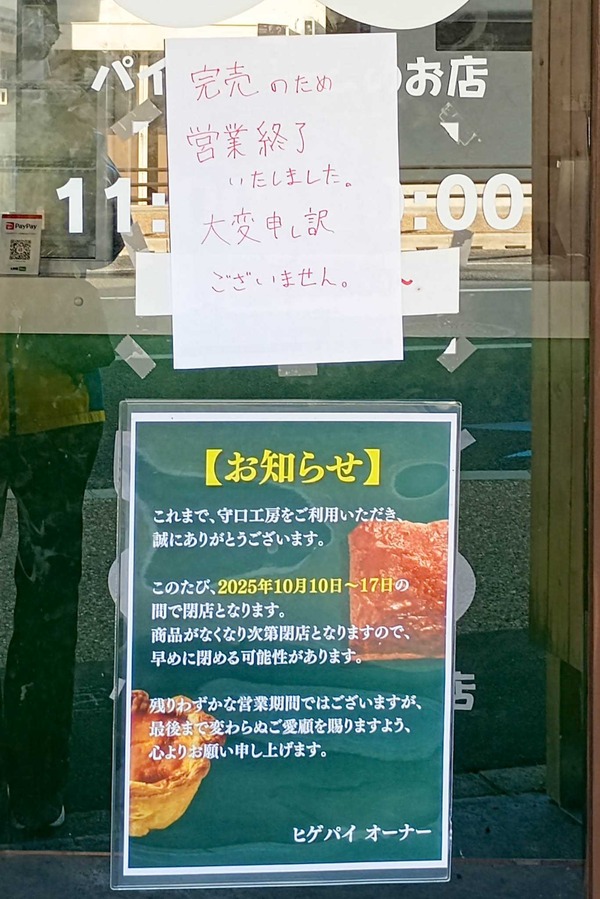 パイ
のお店
完売のため
営業終了
いたしました。
大変申し訳
ございません。
11:
:00
PayPay
～
【お知らせ】
これまで、守口工房をご利用いただき、
誠にありがとうございます。
このたび、2025年10月10日～17日の
間で閉店となります。
商品がなくなり次第閉店となりますので、
早めに閉める可能性があります。
残りわずかな営業期間ではございますが、
最後まで変わらぬご愛顧を賜りますよう、
心よりお願い申し上げます。
ヒゲパイ オーナー
店